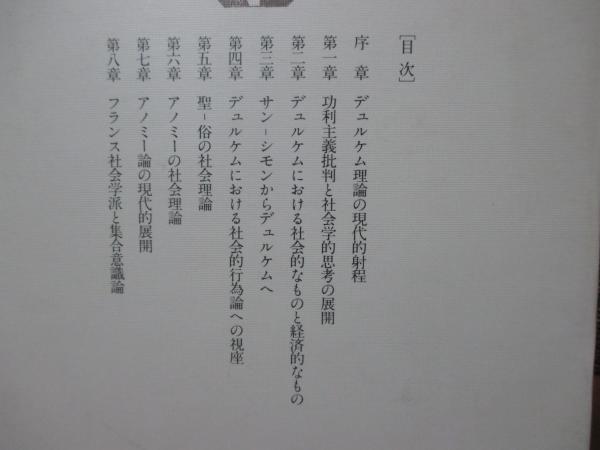 [目次]
序章 デュルケム理論の現代的射程
第一章 功利主義批判と社会学的思考の展開
第二章 デュルケムにおける社会的なものと経済的なもの
第三章 サン-シモンからデュルケムへ
第四章 デュルケムにおける社会的行為論への視座
第五章 聖-俗の社会理論
第六章 アノミーの社会理論
第七章 アノミー論の現代的展開
第八章 フランス社会学派と集合意識論